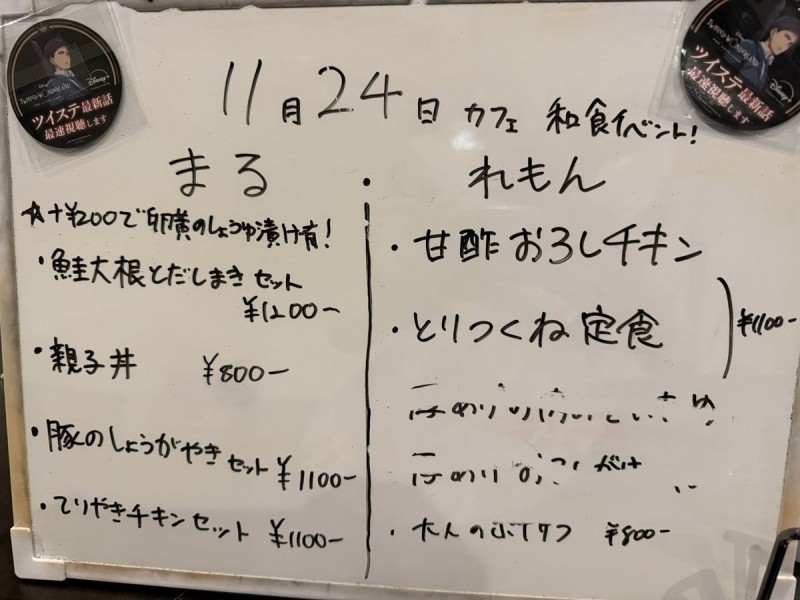 11月24日 カフェ 和食イベント!
まる
☆+¥200で卵黄のしょうゆ漬け有!
・鮭大根とだしまきセット
¥1200-
・親子丼 ¥800-
・豚のしょうがやきセット ¥1100-
・てりやきチキンセット ¥1100-
・れもん
・甘酢おろしチキン
・とりつくね定食
¥1100-
・大人の ¥800-
ツイステ最新話
最速視聴します
Disney+
ツイステ最新話
最速視聴します
Disney+